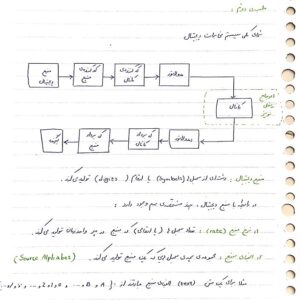 جلسه‌ی دوم:
نمای کلی سیستم مخابرات دیجیتال
منبع دیجیتال
کدگذاری منبع
کدگذاری کانال
مدولاتور
کانال
دمدولاتور
کدبردار کانال
کدبردار منبع
گیرنده
منبع دیجیتال: دنباله‌ای از سمبل‌ها (Symbols) یا ارقام (digits) تولید می‌کند.
در رابطه با منبع دیجیتال، چند مشخصه‌ی مهم وجود دارد:
۱- نرخ منبع (rate): تعداد سمبل‌ها (یا ارقامی) که منبع در هر واحد زمان تولید می‌کند.
۲- الفبای منبع: مجموعه‌ی همه‌ی سمبل‌هایی که یک منبع تولید می‌کند. (Source Alphabet)
مثلا برای یک متن (text) الفبای منبع عبارتند از: {A, B,